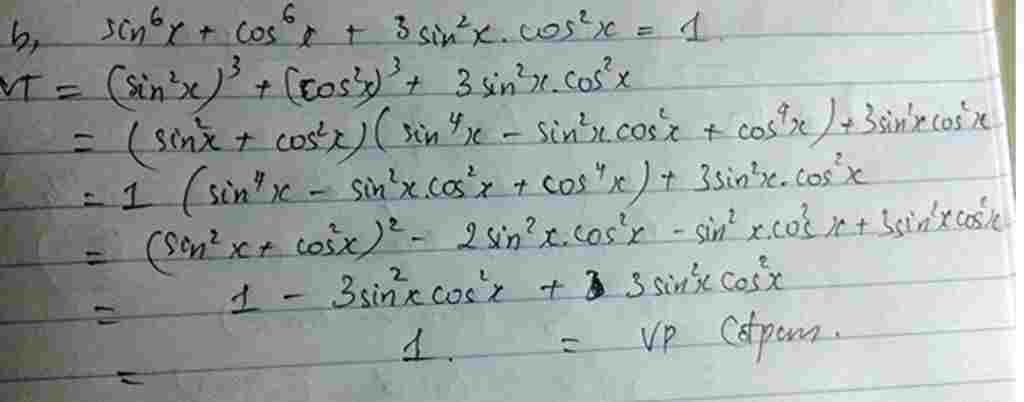 b, sin⁶x + cos⁶x + 3sin²x.cos²x = 1
VT = (sin²x)³ + (cos²x)³ + 3sin²x.cos²x
= (sin²x + cos²x)(sin⁴x - sin²x.cos²x + cos⁴x) + 3sin²xcos²x
= 1 (sin⁴x - sin²x.cos²x + cos⁴x) + 3sin²x.cos²x
= (sin²x + cos²x)² - 2sin²x.cos²x - sin²x.cos²x + 3sin²xcos²x
= 1 - 3sin²xcos²x + 3sin²xcos²x
= 1. = VP (đpcm.